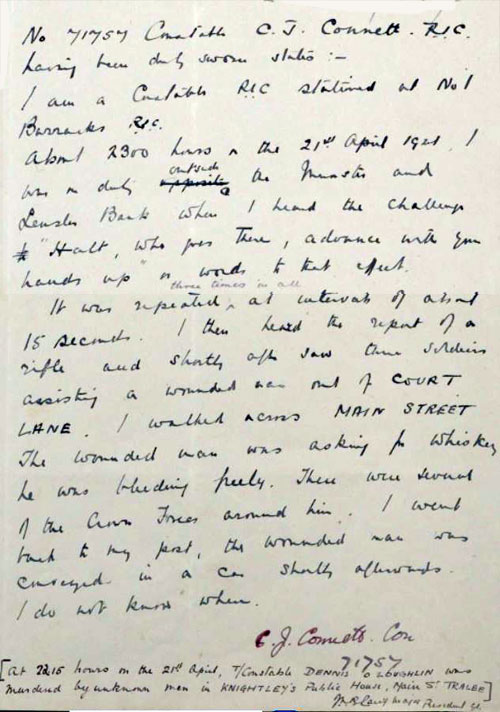 No 71757 Constable C. J. Connett. R.I.C.
having been duly sworn states :-
I am a Constable RIC stationed at No 1
Barracks R.I.C.
About 2300 hours on the 21st April 1921. I
outside
was on duty opposite the Munster and
Leinster Bank when I heard the challenge
"Halt, who goes there, advance with your
hands up" or words to that effect.
three times in all
It was repeated, at intervals of about
15 seconds. I then heard the report of a
rifle and shortly after saw three soldiers
assisting a wounded man out of COURT
LANE. I walked across MAIN STREET
The wounded man was asking for whiskey
he was bleeding freely. There were several
of the Crown Forces around him. I went
back to my post, the wounded man was
conveyed in a car shortly afterwards.
I do not know where.
C. J. Connett. Con
71757
[At 2215 hours on the 21st April, T/Constable DENNIS O LOUGHLIN was
murdered by unknown men in KNIGHTLEY'S Public House, Main St TRALEE]
Major President